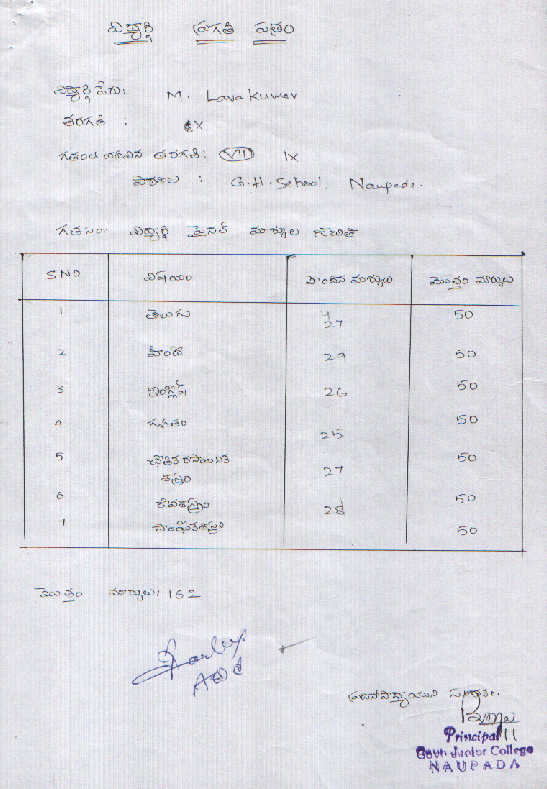 విద్యార్థి ప్రగతి పత్రం
విద్యార్థి పేరు: M. Lava Kumar
తరగతి : IX
గతంలో చదివిన తరగతి: VII IX
పాఠశాల : G.H. School, Naupada.
గతసం. విద్యార్థి ఫైనల్ మార్కుల
S.NO విషయం మార్కులు మొత్తం మార్కులు
1 తెలుగు 27 50
2 హిందీ 29 50
3 ఇంగ్లీష్ 26 50
గణితం 25 50
5 27 50
శాస్త్రం
6 28 50
50
మొత్తం మార్కులు: 162
ప్రధానోపాధ్యాయుని సంతకం.
Principal
Govt Junior College
NAUPADA